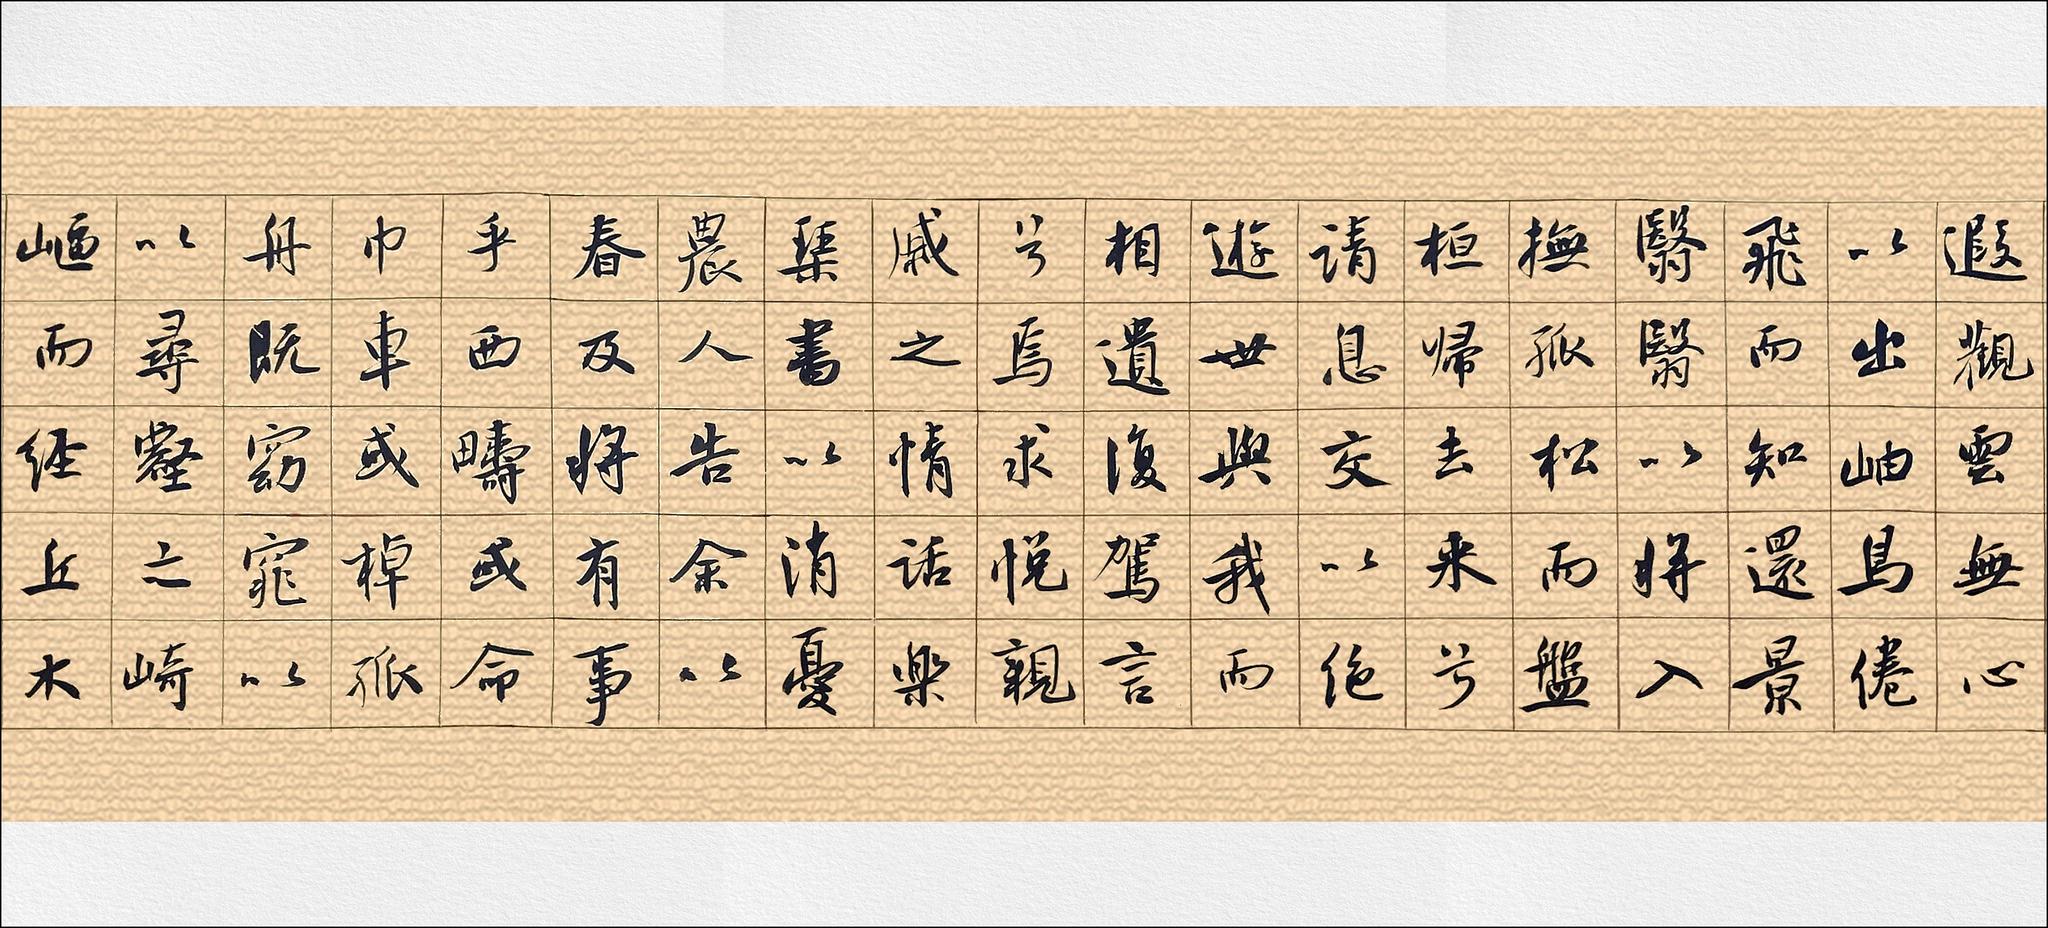 遐觀雲無心
以出岫鳥倦
飛而知還景
翳翳以將入
撫孤松而盤
桓歸去来兮
請息交以絶
遊世與我而
相遺復駕言
兮焉求悦親
戚之情話樂
琴書以消憂
農人告余以
春及將有事
乎西疇或命
巾車或棹孤
舟既窈窕以
以尋壑亦崎
嶇而経丘木